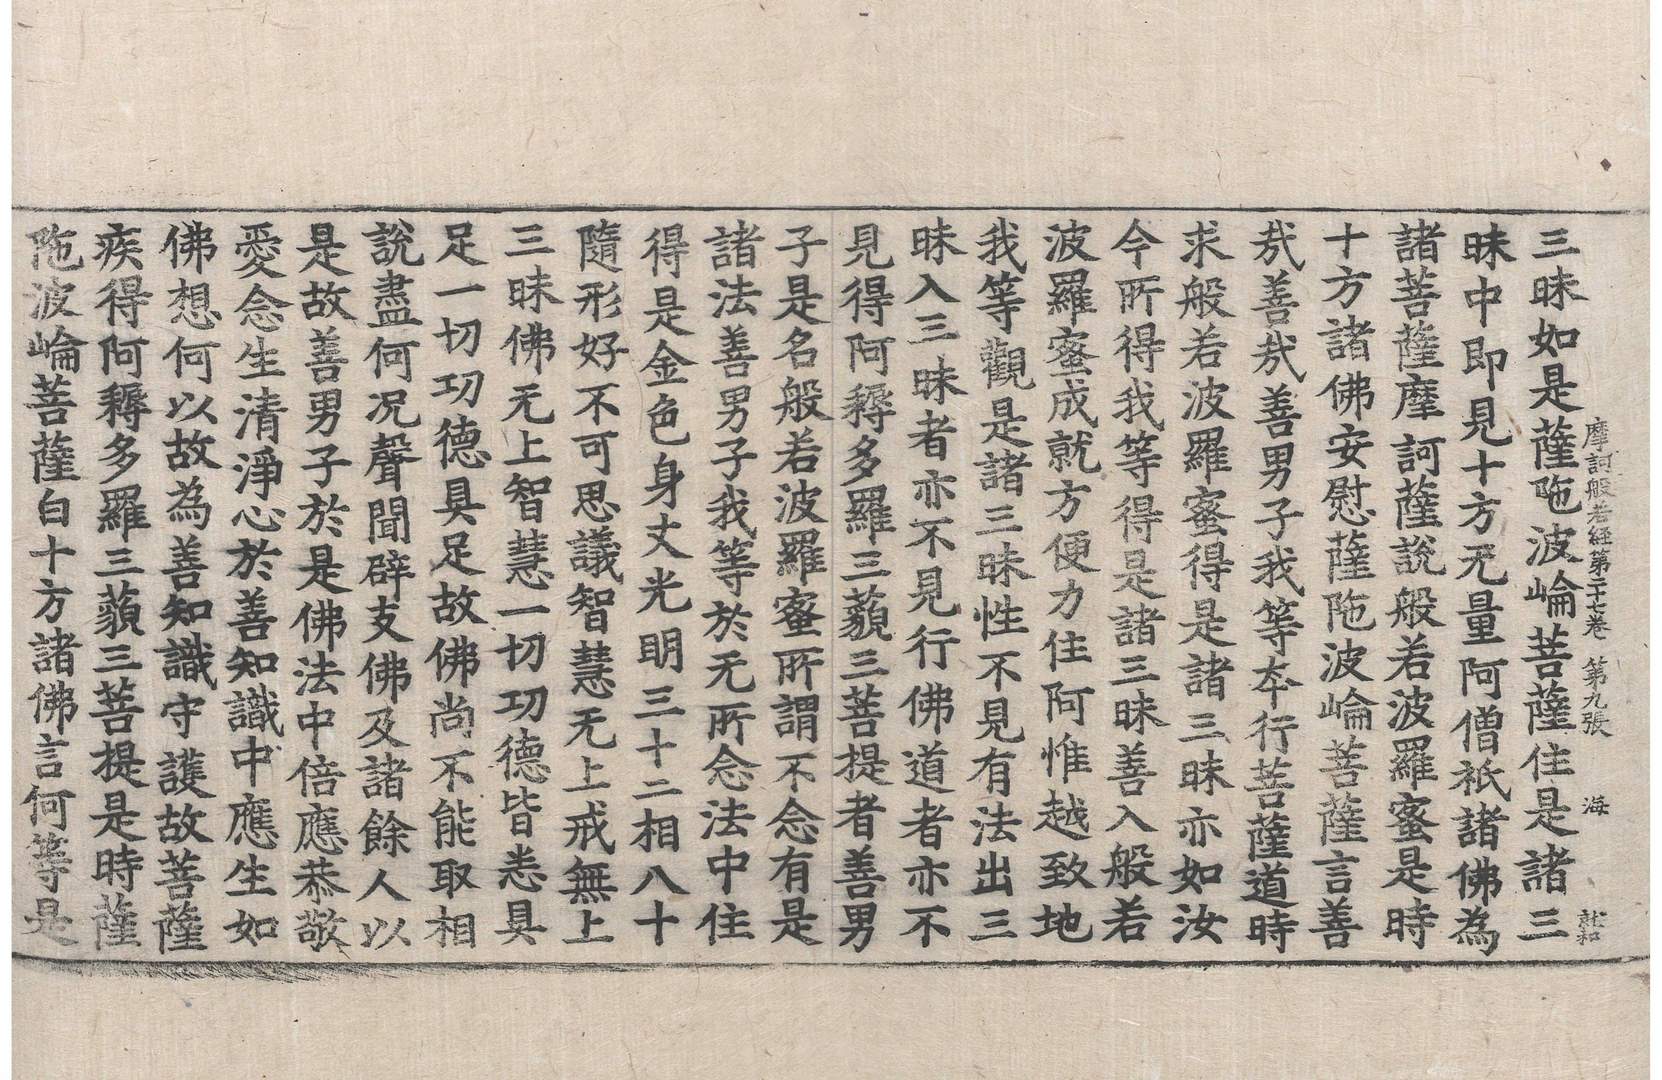 摩訶般若経第二十七巻 第九張 海 㪽和
三昧如是薩陁波崙菩薩住是諸三
昧中即見十方无量阿僧祇諸佛為
諸菩薩摩訶薩說般若波羅蜜是時
十方諸佛安慰薩陁波崙菩薩言善
㢤善㢤善男子我等夲行菩薩道時
求般若波羅蜜得是諸三昧亦如汝
今所得我等得是諸三昧善入般若
波羅蜜成就方便力住阿惟越致地
我等觀是諸三昧性不見有法出三
昧入三昧者亦不見行佛道者亦不
見得阿耨多羅三藐三菩提者善男
子是名般若波羅蜜所謂不念有是
諸法善男子我等於无所念法中住
得是金色身丈光明三十二相八十
隨形好不可思議智慧无上戒無上
三昧佛无上智慧一切功德皆悉具
足一切功德具足故佛尚不能取相
說盡何况聲聞辟支佛及諸餘人以
是故善男子於是佛法中倍應恭敬
愛念生清淨心於善知識中應生如
佛想何以故為善知識守護故菩薩
疾得阿耨多羅三藐三菩提是時薩
陁波崙菩薩白十方諸佛言何等是